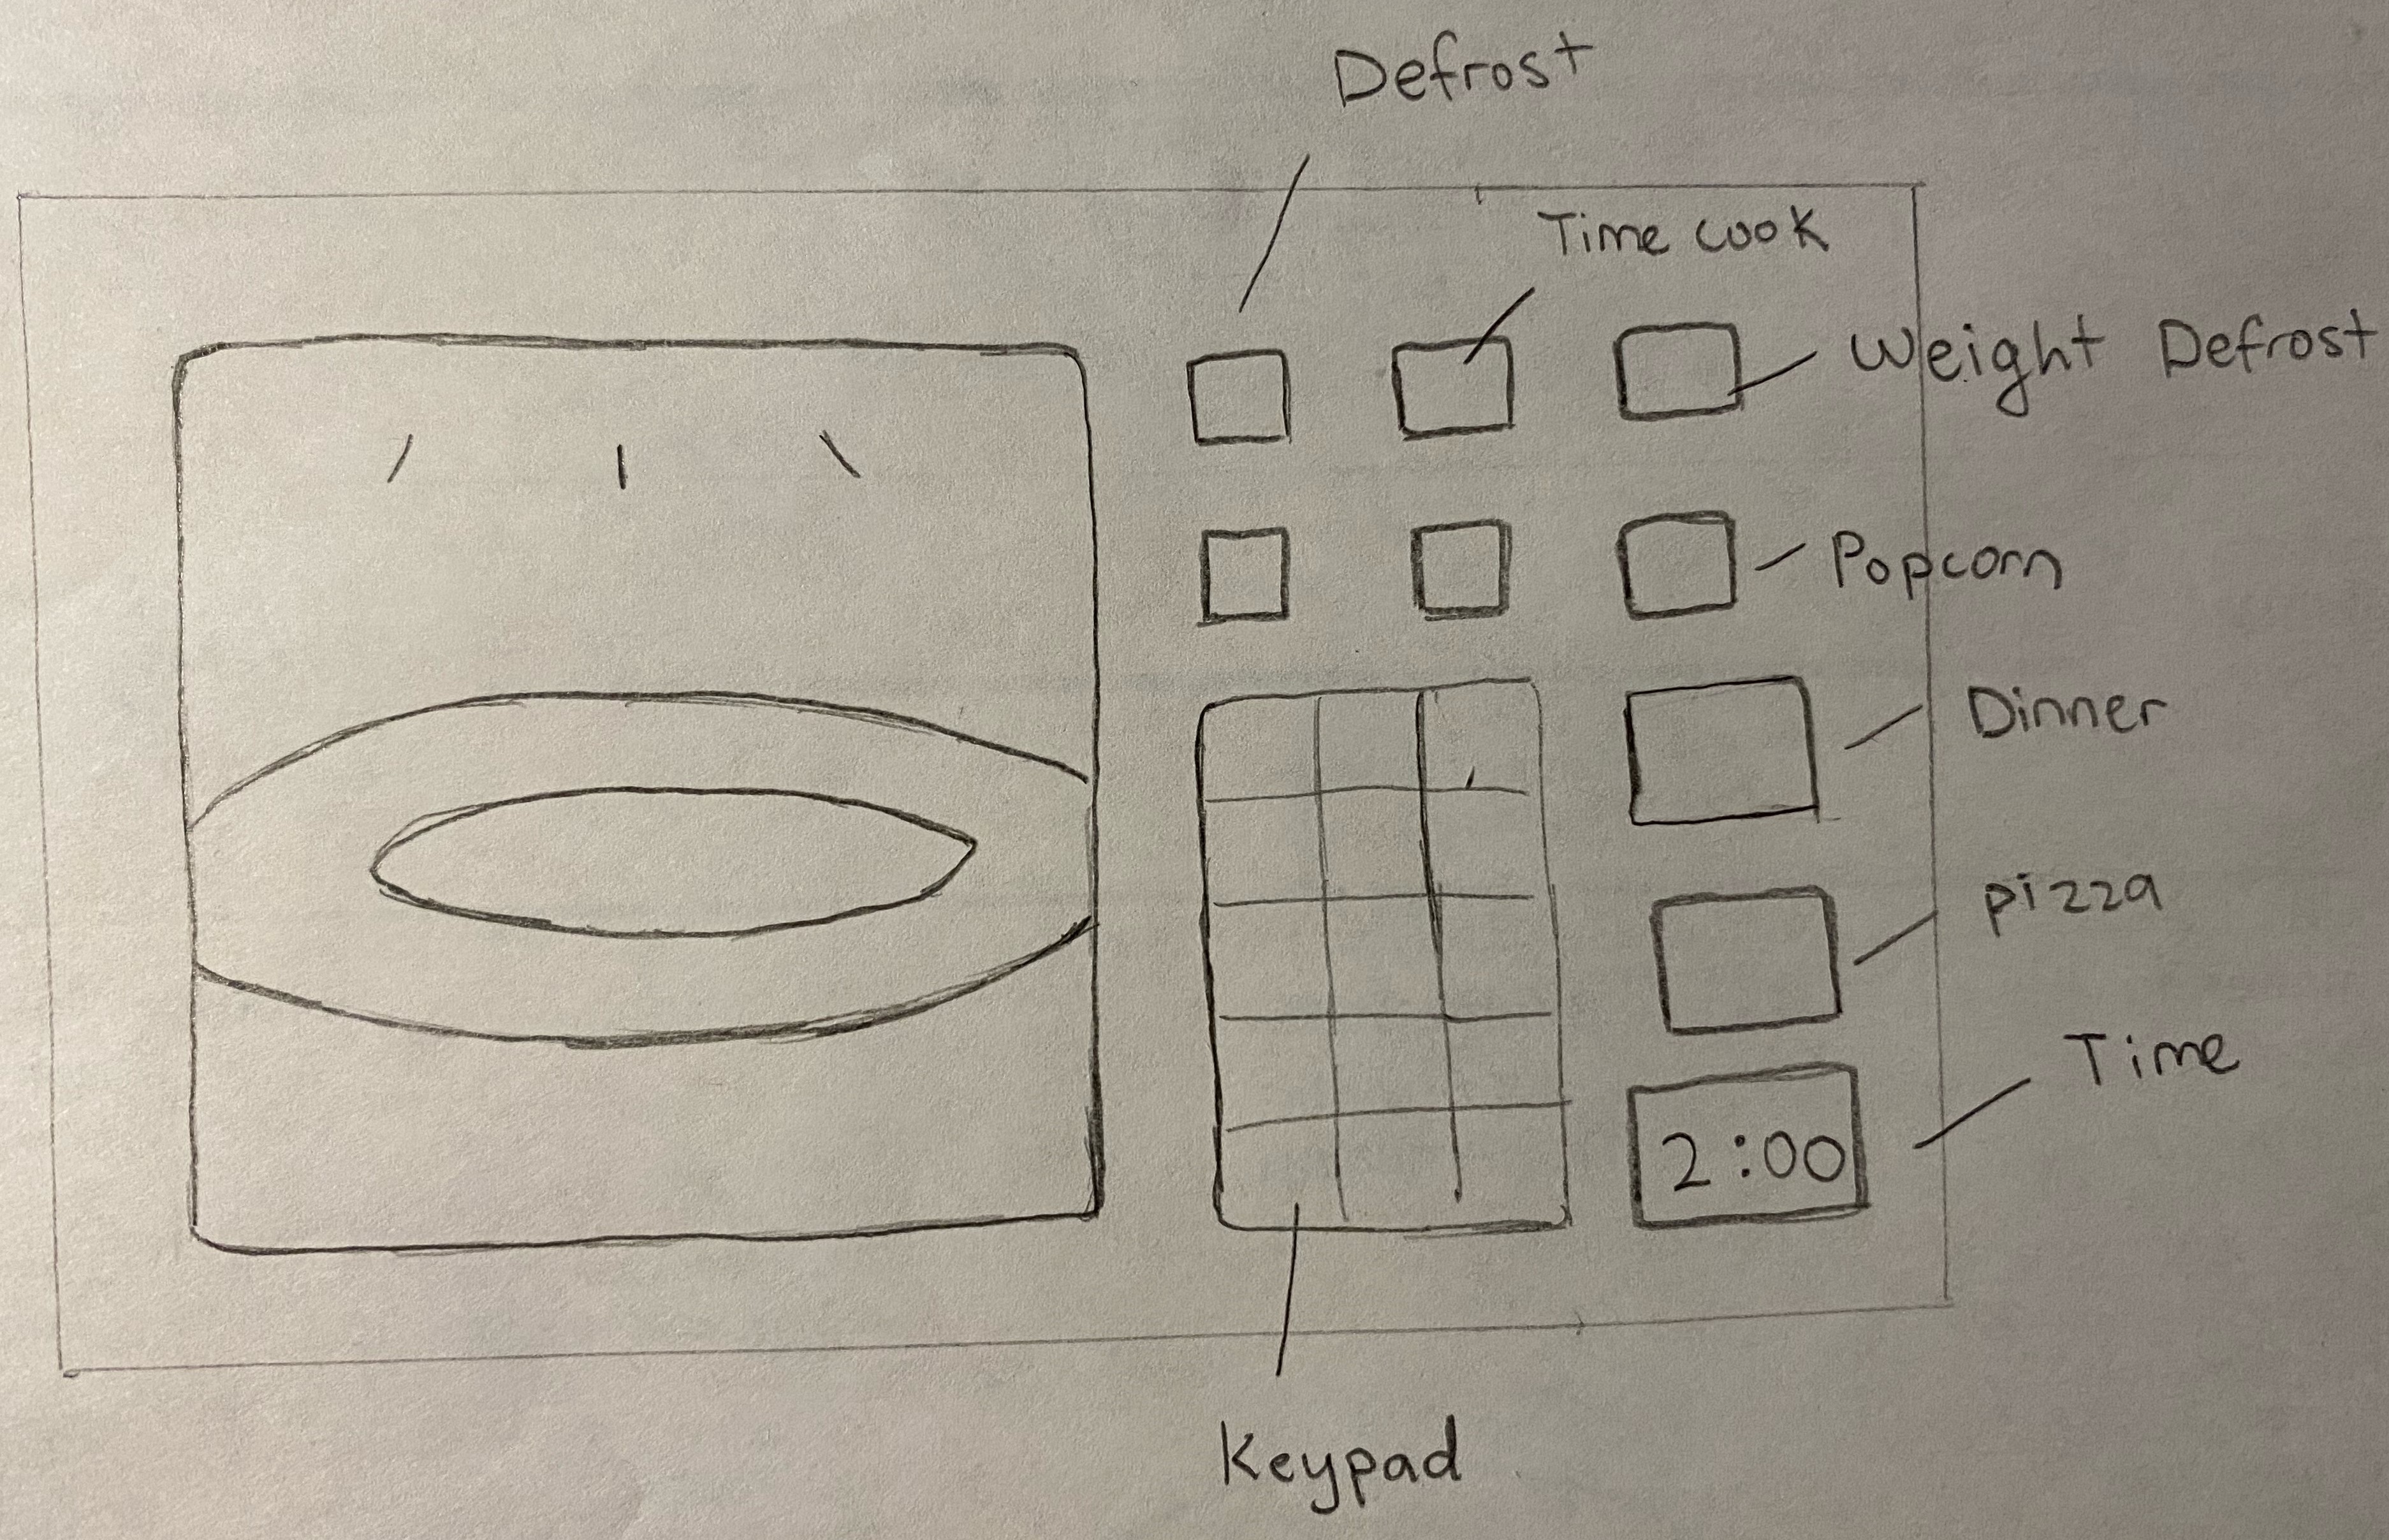 Defrost
Time cook
Weight Defrost
Popcorn
Dinner
pizza
Time
2:00
Keypad